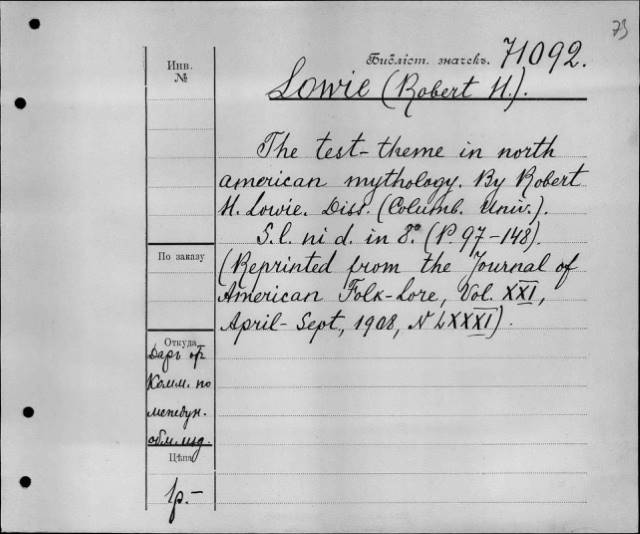 73
Библіот. значекъ. 71092.
Инв.
№
Lowie (Robert H.).
The test-theme in north
american mythology. By Robert
H. Lowie. Diss. (Columb. Univ.).
S.l. ni d. in 8.° (P. 97-148).
По заказу
(Reprinted from the Journal of
American Folk-Lore, Vol. XXI,
April-Sept., 1908, N LXXXI).
Откуда
Даръ от
Комм. по
междун.
обм. изд.
Цѣна
1р.-